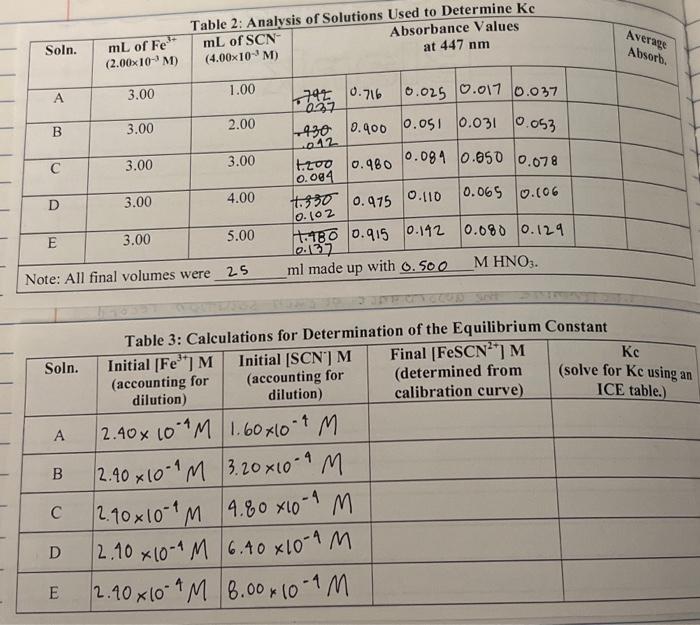 Table 2: Analysis of Solutions Used to Determine Kc
Soln. mL of Fe³⁺ (2.00x10⁻³ M) mL of SCN⁻ (4.00x10⁻³ M) Absorbance Values at 447 nm Average Absorb.
A 3.00 1.00 .792 0.037 0.716 0.025 0.017 0.037
B 3.00 2.00 .930 .042 0.900 0.051 0.031 0.053
C 3.00 3.00 1.200 0.084 0.980 0.084 0.050 0.078
D 3.00 4.00 1.330 0.102 0.975 0.110 0.065 0.106
E 3.00 5.00 1.480 0.137 0.915 0.142 0.080 0.129
Note: All final volumes were 25 ml made up with 0.500 M HNO₃.
Table 3: Calculations for Determination of the Equilibrium Constant
Soln. Initial [Fe³⁺] M (accounting for dilution) Initial [SCN⁻] M (accounting for dilution) Final [FeSCN²⁺] M (determined from calibration curve) Kc (solve for Kc using an ICE table.)
A 2.40 x 10⁻⁴ M 1.60 x10⁻⁴ M
B 2.40 x10⁻⁴ M 3.20 x10⁻⁴ M
C 2.40 x10⁻⁴ M 4.80 x10⁻⁴ M
D 2.40 x10⁻⁴ M 6.40 x10⁻⁴ M
E 2.40 x10⁻⁴ M 8.00 x 10⁻⁴ M